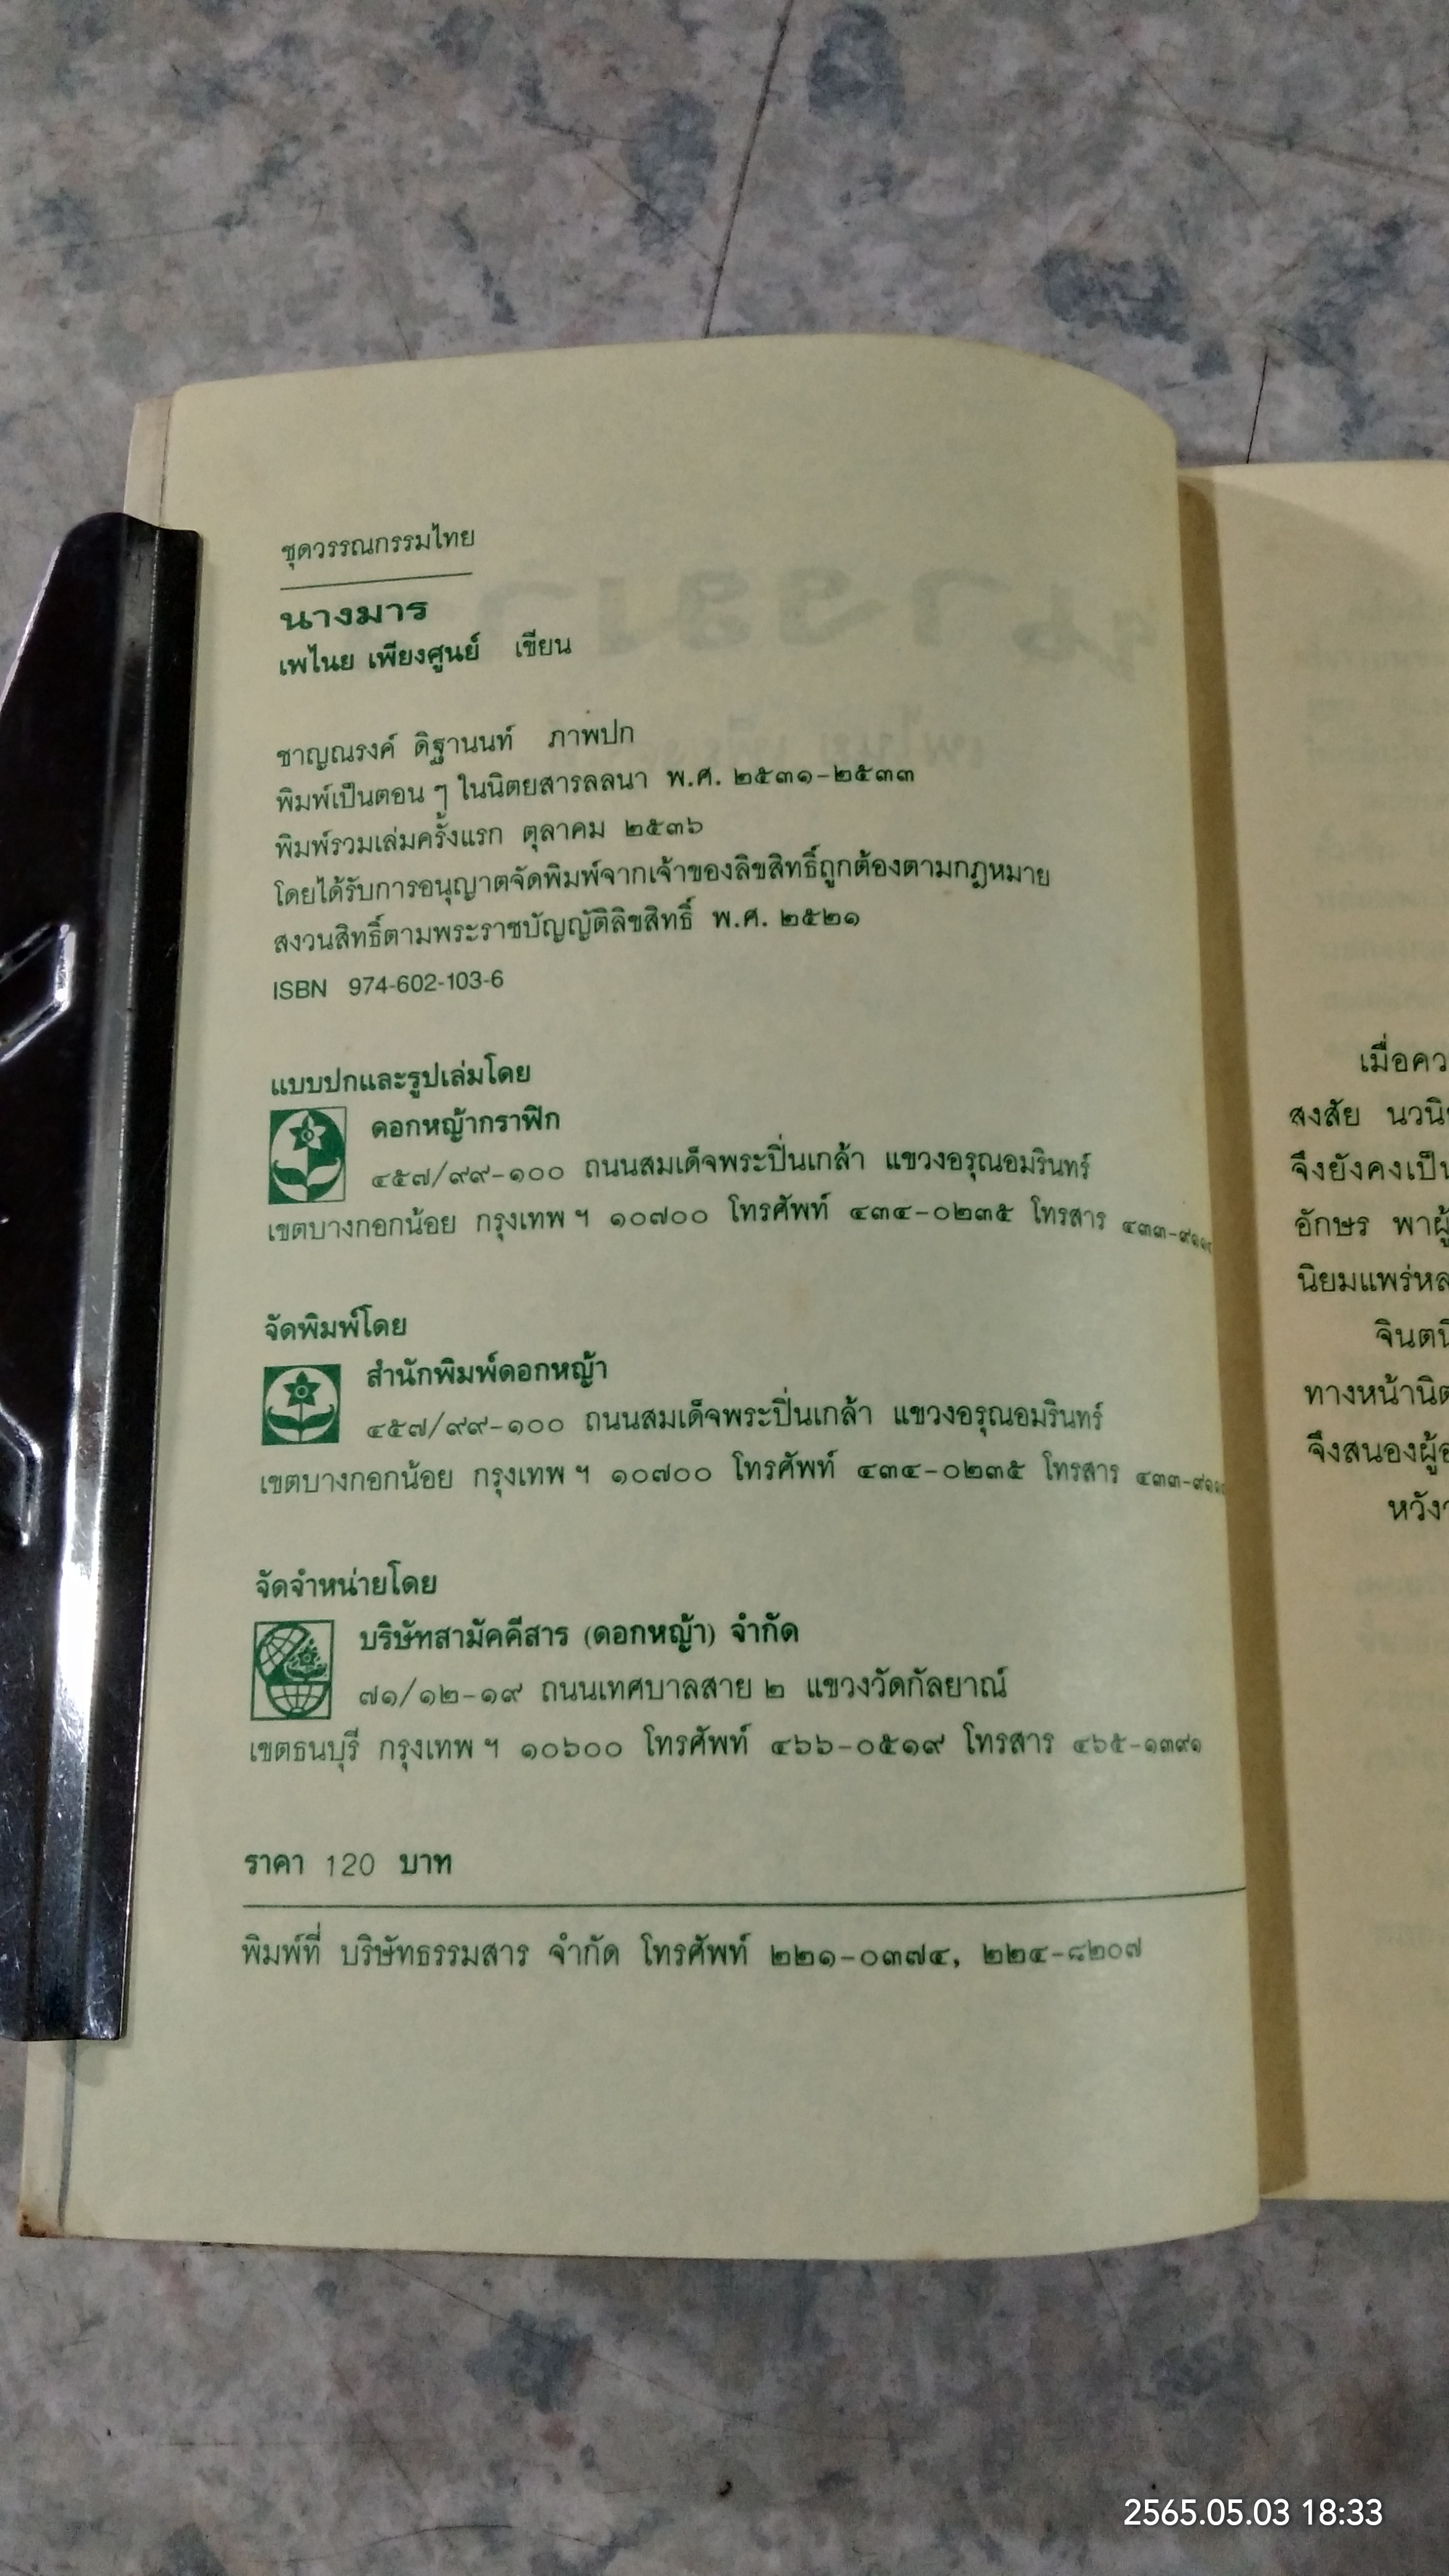 ชุดวรรณกรรมไทย
นางมาร
เพไนย เพียงศูนย์ เขียน
ชาญณรงค์ ดิฐานนท์ ภาพปก
พิมพ์เป็นตอน ๆ ในนิตยสารลลนา พ.ศ. ๒๕๓๑-๒๕๓๓
พิมพ์รวมเล่มครั้งแรก ตุลาคม ๒๕๓๖
โดยได้รับการอนุญาตจัดพิมพ์จากเจ้าของลิขสิทธิ์ถูกต้องตามกฎหมาย
สงวนสิทธิ์ตามพระราชบัญญัติลิขสิทธิ์ พ.ศ. ๒๕๒๑
ISBN 974-602-103-6
แบบปกและรูปเล่มโดย
ดอกหญ้ากราฟิก
๔๕๗/๙๙-๑๐๐ ถนนสมเด็จพระปิ่นเกล้า แขวงอรุณอมรินทร์
เขตบางกอกน้อย กรุงเทพ ฯ ๑๐๗๐๐ โทรศัพท์ ๔๓๔-๐๒๓๕ โทรสาร
จัดพิมพ์โดย
สำนักพิมพ์ดอกหญ้า
๔๕๗/๙๙-๑๐๐ ถนนสมเด็จพระปิ่นเกล้า แขวงอรุณอมรินทร์
เขตบางกอกน้อย กรุงเทพ ฯ ๑๐๗๐๐ โทรศัพท์ ๔๓๔-๐๒๓๕ โทรสาร
จัดจำหน่ายโดย
บริษัทสามัคคีสาร (ดอกหญ้า) จำกัด
๗๑/๑๒-๑๙ ถนนเทศบาลสาย ๒ แขวงวัดกัลยาณ์
เขตธนบุรี กรุงเทพ ฯ ๑๐๖๐๐ โทรศัพท์ ๔๖๖-๐๕๑๙ โทรสาร ๔๖๕-๑๓๙๑
ราคา 120 บาท
พิมพ์ที่ บริษัทธรรมสาร จำกัด โทรศัพท์ ๒๒๑-๐๓๗๔, ๒๒๔-๘๒๐๗
เมื่อคว
สงสัย
จึงยังคงเป็น
อักษร พาผู้
นิยมแพร่หล
จินตนิ
ทางหน้านิต
จึงสนองผู้อ
หวังว
2565.05.03 18:33